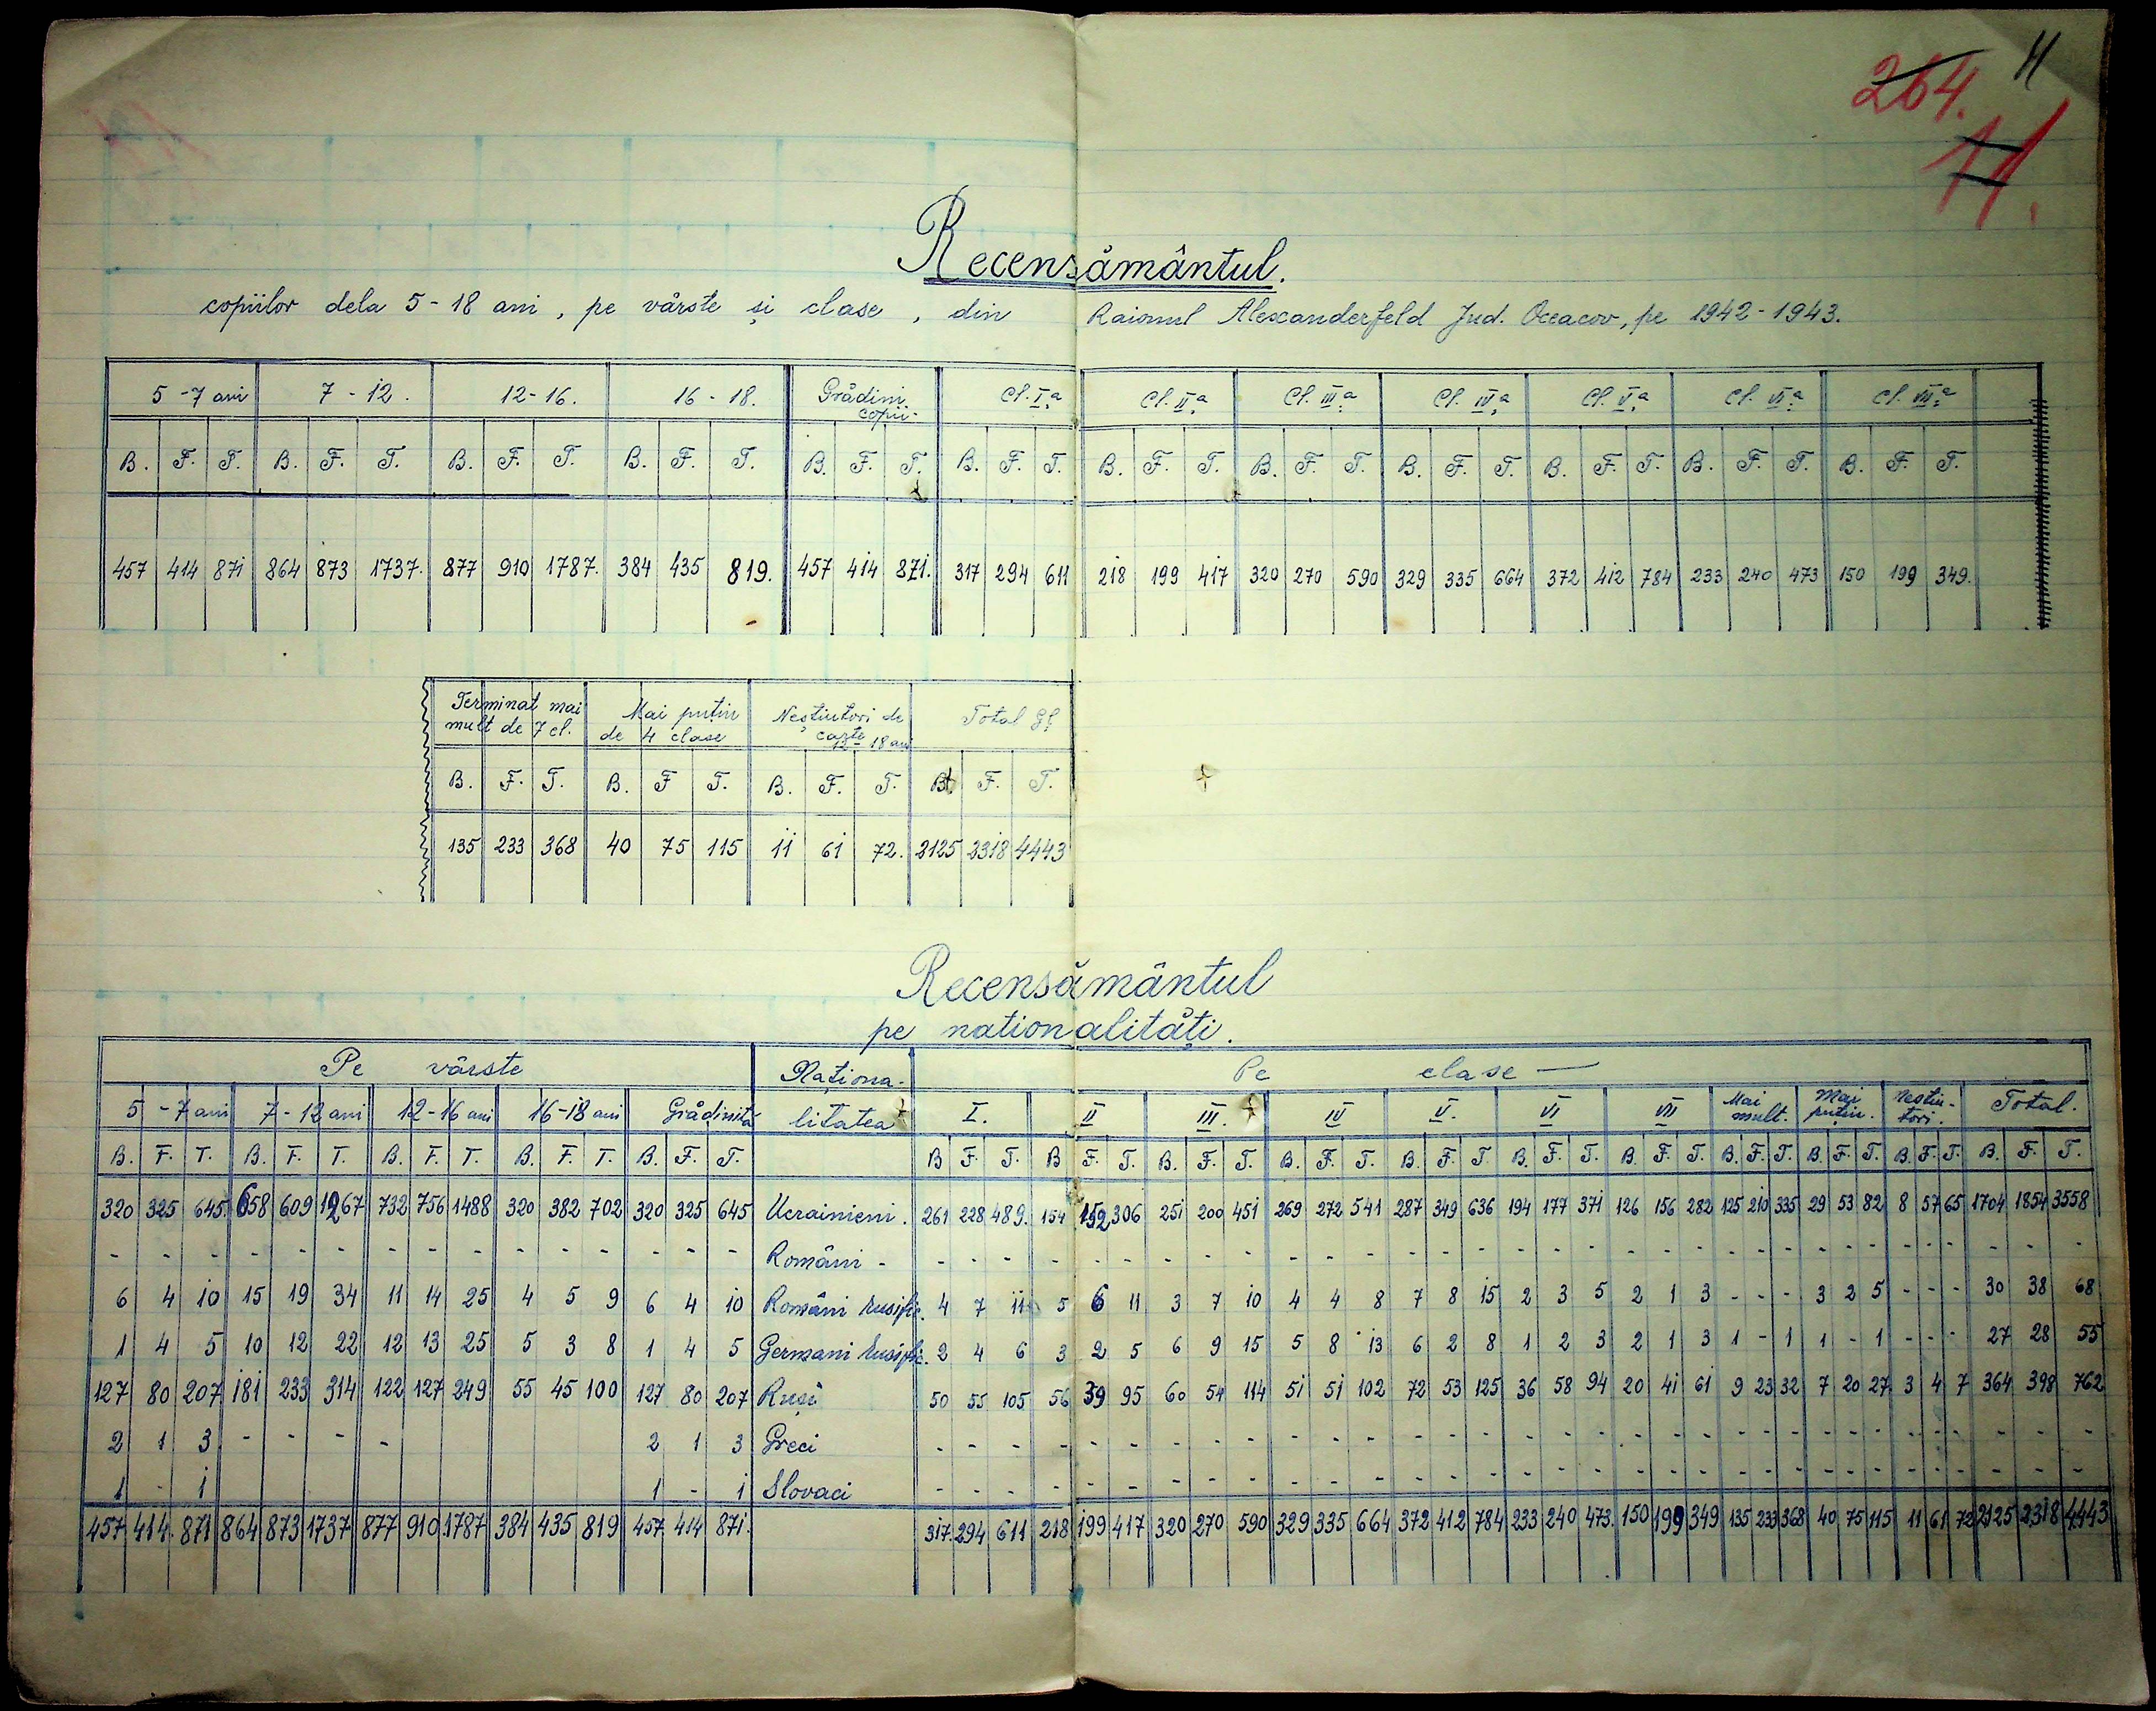 264. 11
11.
Recensământul.
copiilor dela 5-18 ani, pe vârste și clase, din Raionul Alexanderfeld Jud. Oceacov, pe 1942-1943.
5-7 ani 7-12. 12-16. 16-18. Grădini copii. Cl. I.a Cl. II.a Cl. III.a Cl. IV.a Cl. V.a Cl. VI.a Cl. VII.a
B. F. T. B. F. T. B. F. T. B. F. T. B. F. T. B. F. T. B. F. T. B. F. T. B. F. T. B. F. T. B. F. T. B. F. T.
457 414 871 864 873 1737. 877 910 1787. 384 435 819. 457 414 871. 317 294 611 218 199 417 320 270 590 329 335 664 372 412 784 233 240 473 150 199 349.
Terminat mai mult de 7 cl. Mai puțin de 4 clase Neștiutori de carte 12-18 ani Total Gl.
B. F. T. B. F T. B. F. T. B. F. T.
135 233 368 40 75 115 11 61 72. 2125 2318 4443
Recensământul
pe naționalități.
Pe vârste Naționa- Pe clase —
5-7 ani 7-12 ani 12-16 ani 16-18 ani Grădiniță litatea I. II III. IV V. VI VII Mai mult. Mai puțin. Neștiu-tori. Total.
B. F. T. B. F. T. B. F. T. B. F. T. B. F. T. B F. T. B F. T. B. F. T. B. F. T. B. F. T. B. F. T. B. F. T. B. F. T. B. F. T. B. F. T. B. F. T.
320 325 645 658 609 1267 732 756 1488 320 382 702 320 325 645 Ucrainieni. 261 228 489. 154 152 306 251 200 451 269 272 541 287 349 636 194 177 371 126 156 282 125 210 335 29 53 82 8 57 65 1704 1854 3558
- - - - - - - - - - - - - - - Români - - - - - - - - - - - - - - - - - - - - - - - - - - - - - - - - - -
6 4 10 15 19 34 11 14 25 4 5 9 6 4 10 Români rusific. 4 7 11 5 6 11 3 7 10 4 4 8 7 8 15 2 3 5 2 1 3 - - - 3 2 5 - - - 30 38 68
1 4 5 10 12 22 12 13 25 5 3 8 1 4 5 Germani rusific. 2 4 6 3 2 5 6 9 15 5 8 13 6 2 8 1 2 3 2 1 3 1 - 1 1 - 1 - - - 27 28 55
127 80 207 181 233 314 122 127 249 55 45 100 127 80 207 Ruși 50 55 105 56 39 95 60 54 114 51 51 102 72 53 125 36 58 94 20 41 61 9 23 32 7 20 27 3 4 7 364 398 762
2 1 3 - - - - 2 1 3 Greci - - - - - - - - - - - - - - - - - - - - - - - - - - - - - - - - -
1 - 1 1 - 1 Slovaci - - - - - - - - - - - - - - - - - - - - - - - - - - - - - - - - -
457 414 871 864 873 1737 877 910 1787 384 435 819 457 414 871. 317. 294 611 218 199 417 320 270 590 329 335 664 372 412 784 233 240 473. 150 199 349 135 233 368 40 75 115 11 61 72 2125 2318 4443